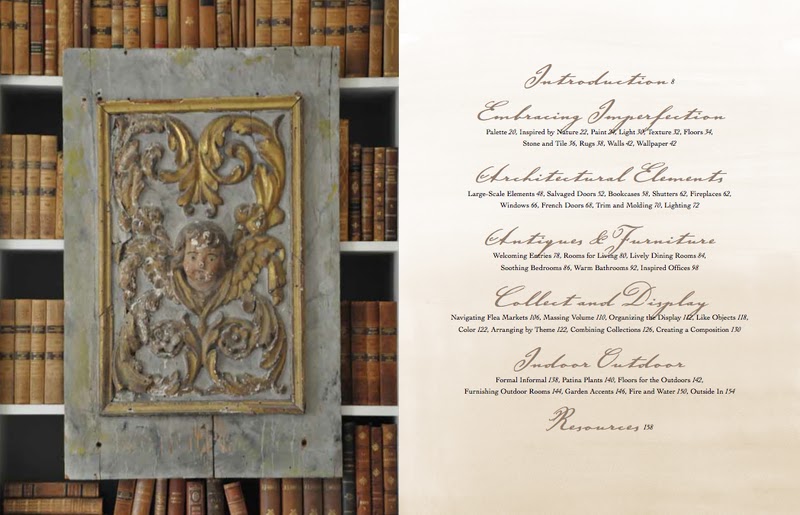 Introduction 8
Embracing Imperfection
Palette 20, Inspired by Nature 22, Paint 24, Light 30, Texture 32, Floors 34,
Stone and Tile 36, Rugs 38, Walls 42, Wallpaper 42
Architectural Elements
Large-Scale Elements 48, Salvaged Doors 52, Bookcases 58, Shutters 62, Fireplaces 62,
Windows 66, French Doors 68, Trim and Molding 70, Lighting 72
Antiques & Furniture
Welcoming Entries 78, Rooms for Living 80, Lively Dining Rooms 84,
Soothing Bedrooms 86, Warm Bathrooms 92, Inspired Offices 98
Collect and Display
Navigating Flea Markets 106, Massing Volume 110, Organizing the Display 112, Like Objects 118,
Color 122, Arranging by Theme 122, Combining Collections 126, Creating a Composition 130
Indoor Outdoor
Formal Informal 138, Patina Plants 140, Floors for the Outdoors 142,
Furnishing Outdoor Rooms 144, Garden Accents 146, Fire and Water 150, Outside In 154
Resources 158